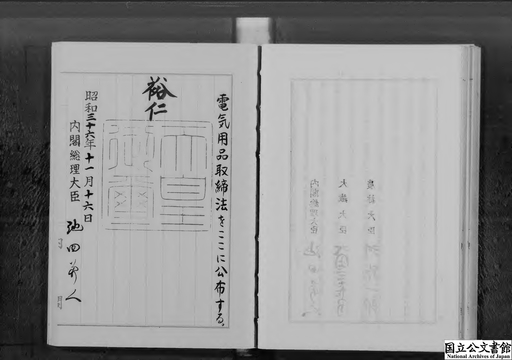 電気用品取締法をここに公布する。
裕仁
天皇
御璽
昭和三十六年十一月十六日
内閣総理大臣 池田勇人
農林大臣
大蔵大臣
内閣総理大臣
国立公文書館
National Archives of Japan